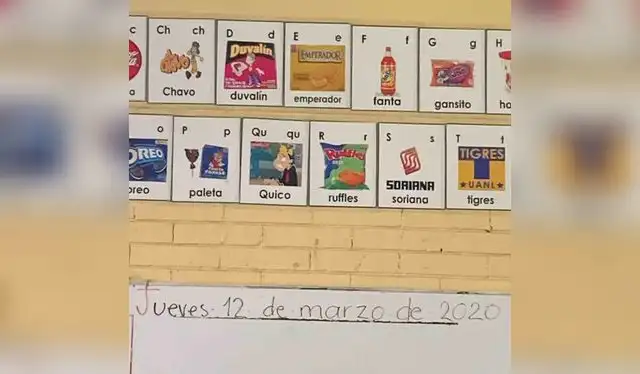 c Ch ch D d E e F f G g H
Chavo Duvalín EMPERADOR
a Chavo duvalín emperador fanta gansito ha
o P p Qu qu R r S s T t
OREO Ruffles SORIANA TIGRES
★ UANL ★
oreo paleta Quico ruffles soriana tigres
Jueves 12 de marzo de 2020